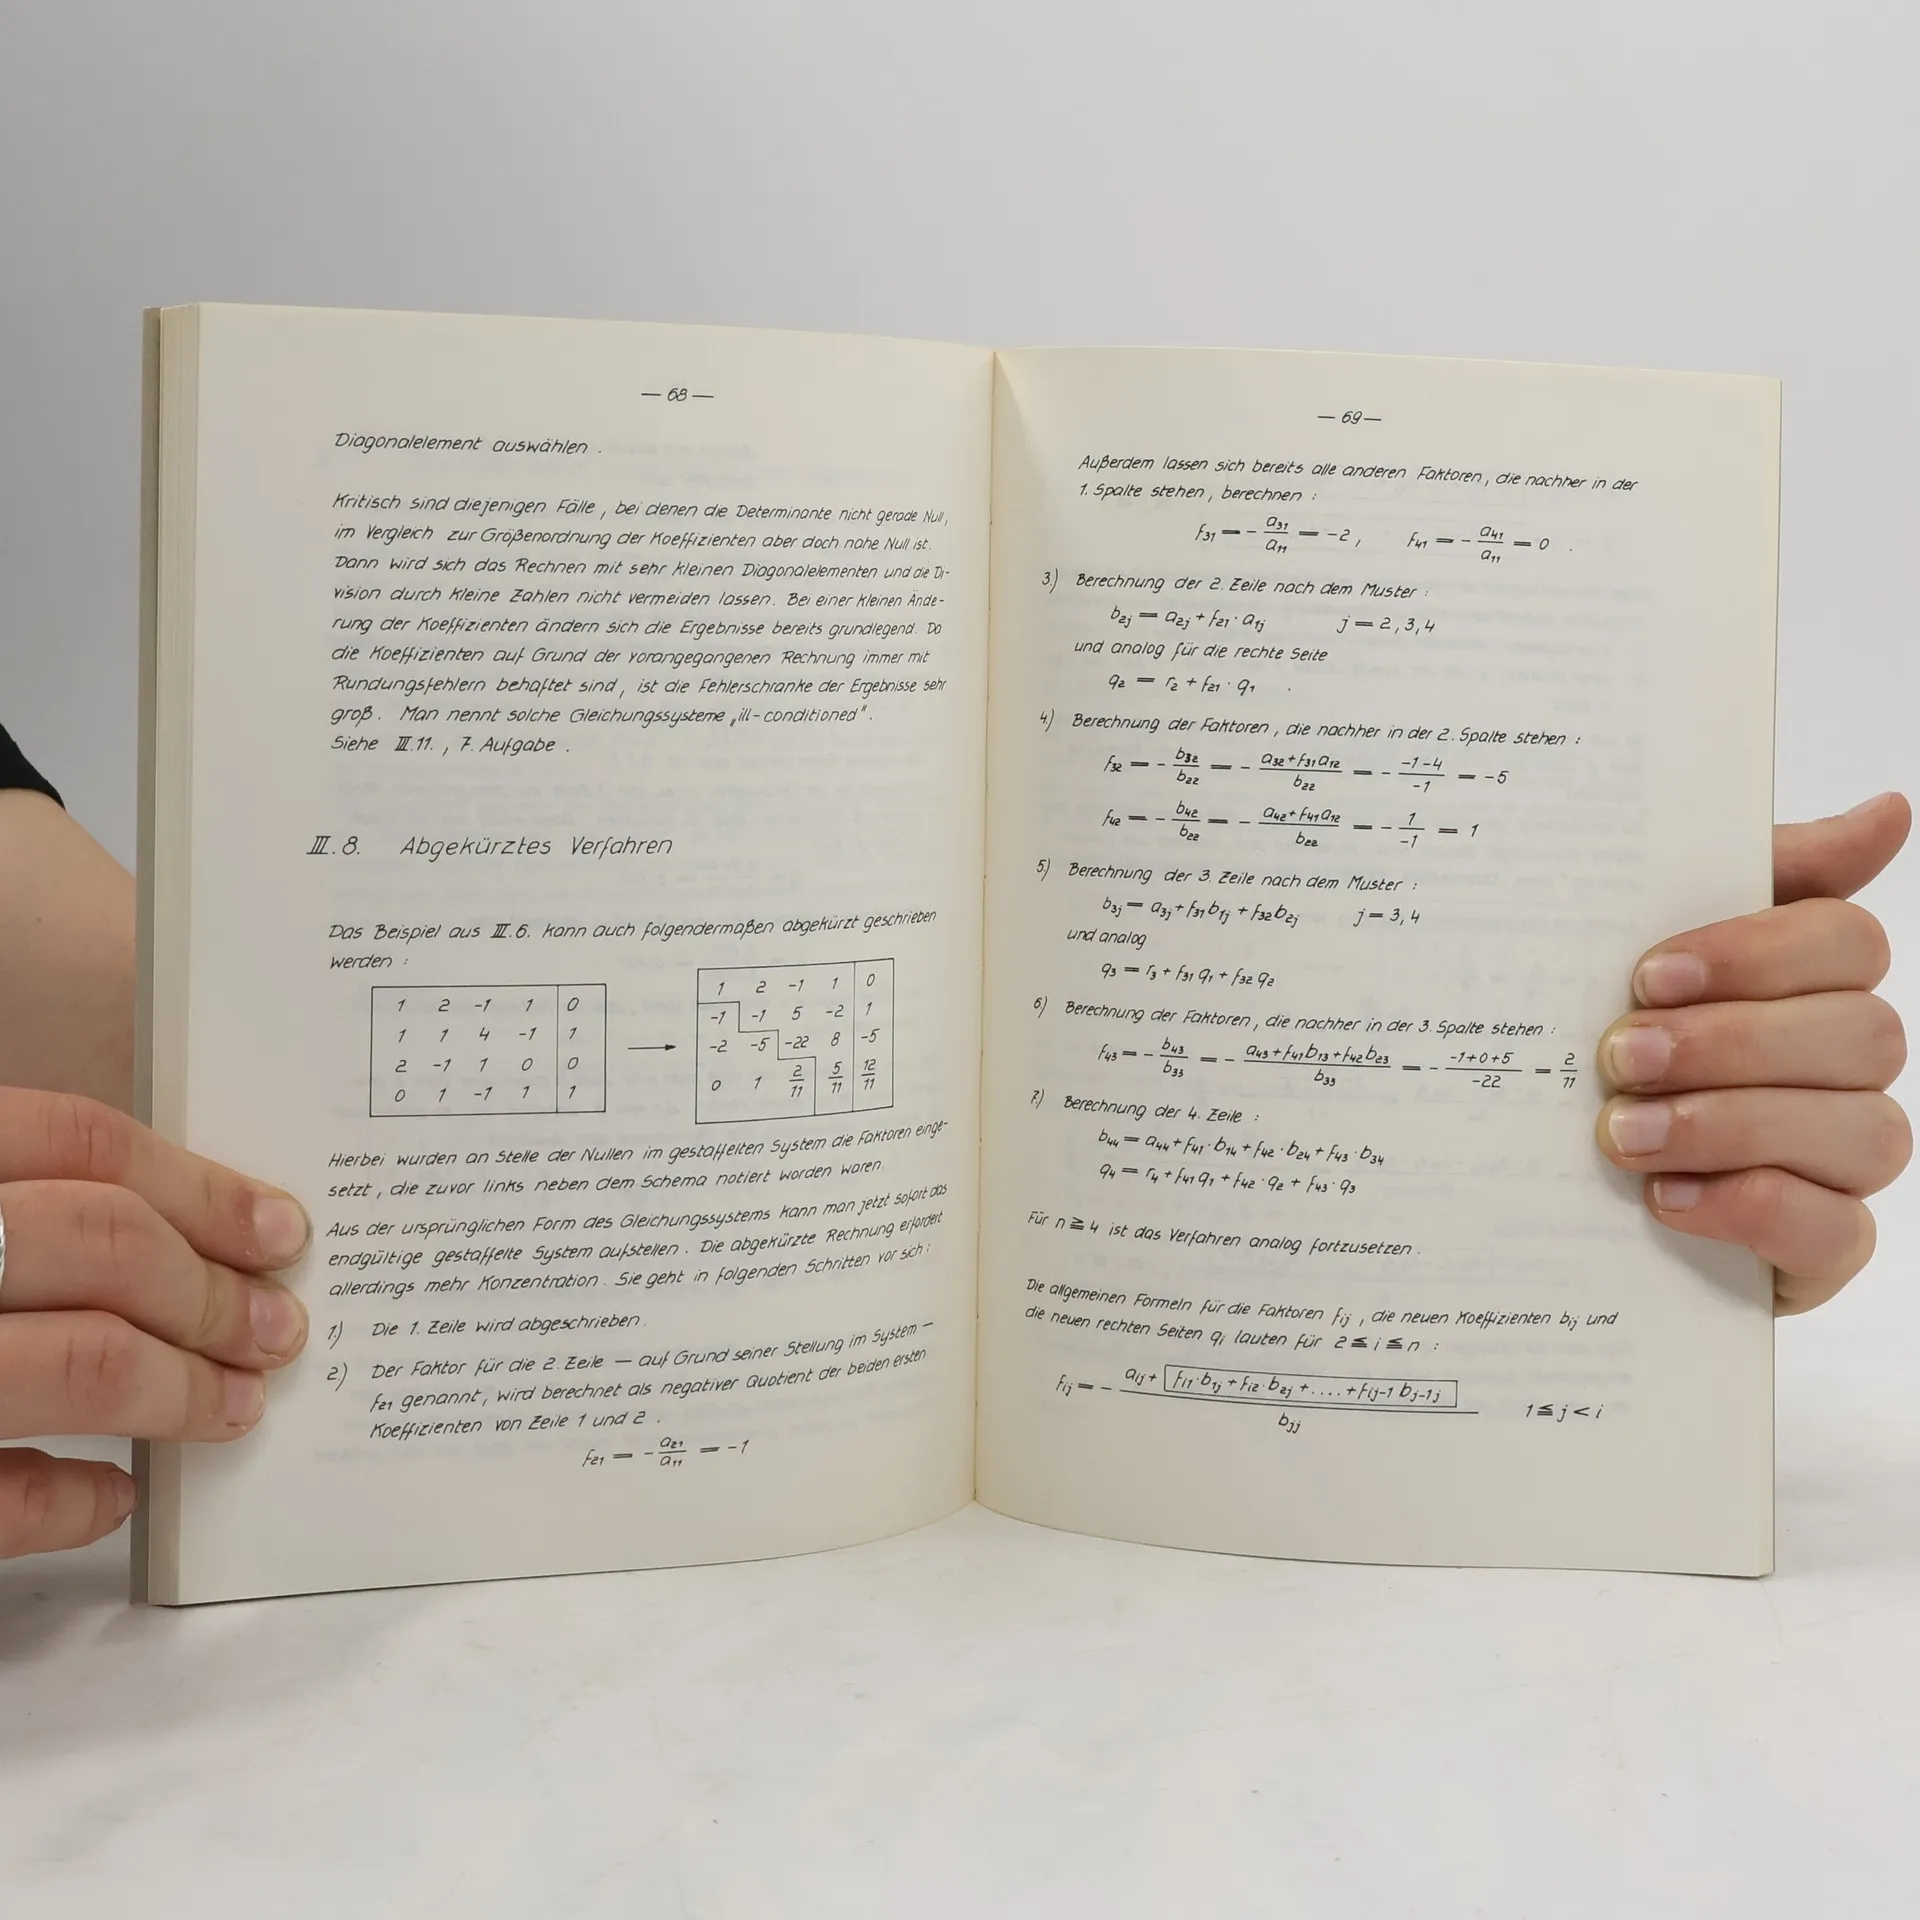 — 68 —
Diagonalelement auswählen .
Kritisch sind diejenigen Fälle , bei denen die Determinante nicht gerade Null,
im Vergleich zur Größenordnung der Koeffizienten aber doch nahe Null ist.
Dann wird sich das Rechnen mit sehr kleinen Diagonalelementen und die Di-
vision durch kleine Zahlen nicht vermeiden lassen. Bei einer kleinen Ände-
rung der Koeffizienten ändern sich die Ergebnisse bereits grundlegend. Da
die Koeffizienten auf Grund der vorangegangenen Rechnung immer mit
Rundungsfehlern behaftet sind , ist die Fehlerschranke der Ergebnisse sehr
groß. Man nennt solche Gleichungssysteme „ill-conditioned".
Siehe III.11. , 7. Aufgabe .
III.8. Abgekürztes Verfahren
Das Beispiel aus III.6. kann auch folgendermaßen abgekürzt geschrieben
werden :
1 2 -1 1 | 0
1 1 4 -1 | 1
2 -1 1 0 | 0
0 1 -1 1 | 1
→
1 2 -1 1 | 0
-1 -1 5 -2 | 1
-2 -5 -22 8 | -5
0 1 2/11 5/11 | 12/11
Hierbei wurden an Stelle der Nullen im gestaffelten System die Faktoren einge-
setzt , die zuvor links neben dem Schema notiert worden waren.
Aus der ursprünglichen Form des Gleichungssystems kann man jetzt sofort das
endgültige gestaffelte System aufstellen . Die abgekürzte Rechnung erfordert
allerdings mehr Konzentration. Sie geht in folgenden Schritten vor sich :
1.) Die 1. Zeile wird abgeschrieben.
2.) Der Faktor für die 2. Zeile — auf Grund seiner Stellung im System —
f₂₁ genannt, wird berechnet als negativer Quotient der beiden ersten
Koeffizienten von Zeile 1 und 2 .
f₂₁ = - a₂₁/a₁₁ = -1
— 69 —
Außerdem lassen sich bereits alle anderen Faktoren, die nachher in der
1. Spalte stehen , berechnen :
f₃₁ = - a₃₁/a₁₁ = -2 , f₄₁ = - a₄₁/a₁₁ = 0 .
3.) Berechnung der 2. Zeile nach dem Muster :
b₂ⱼ = a₂ⱼ + f₂₁ · a₁ⱼ j = 2,3,4
und analog für die rechte Seite
q₂ = r₂ + f₂₁ · q₁ .
4.) Berechnung der Faktoren , die nachher in der 2. Spalte stehen :
f₃₂ = - b₃₂/b₂₂ = - (a₃₂+f₃₁a₁₂)/b₂₂ = - (-1-4)/-1 = -5
f₄₂ = - b₄₂/b₂₂ = - (a₄₂+f₄₁a₁₂)/b₂₂ = - 1/-1 = 1
5.) Berechnung der 3. Zeile nach dem Muster :
b₃ⱼ = a₃ⱼ + f₃₁b₁ⱼ + f₃₂b₂ⱼ j = 3,4
und analog
q₃ = r₃ + f₃₁ q₁ + f₃₂ q₂
6.) Berechnung der Faktoren , die nachher in der 3. Spalte stehen :
f₄₃ = - b₄₃/b₃₃ = - (a₄₃+f₄₁b₁₃+f₄₂b₂₃)/b₃₃ = - (-1+0+5)/-22 = 2/11
7.) Berechnung der 4. Zeile :
b₄₄ = a₄₄ + f₄₁ · b₁₄ + f₄₂ · b₂₄ + f₄₃ · b₃₄
q₄ = r₄ + f₄₁ q₁ + f₄₂ · q₂ + f₄₃ · q₃
Für n ≧ 4 ist das Verfahren analog fortzusetzen .
Die allgemeinen Formeln für die Faktoren fᵢⱼ , die neuen Koeffizienten bᵢⱼ und
die neuen rechten Seiten qᵢ lauten für 2 ≦ i ≦ n :
fᵢⱼ = - (aᵢⱼ + fᵢ₁·b₁ⱼ + fᵢ₂·b₂ⱼ + .... + fᵢⱼ₋₁ bⱼ₋₁ⱼ)/bⱼⱼ 1 ≦ j < i